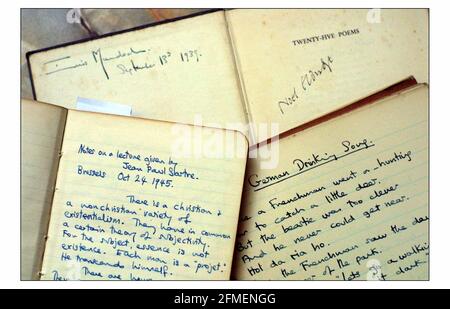 Iris Murdoch.
September 13th 1939.
TWENTY-FIVE POEMS
Notes on a lecture given by
Jean Paul Sartre.
Brussels Oct 24 1945.
There is a christian &
a nonchristian variety of
existentialism. They have in common
a certain theory of subjectivity.
For the subject, essence is not
existence. Each man is a 'projet.'
He transcends himself.
There are
German Drinking Song.
a Frenchman went a-hunting
to catch a little deer.
But the beastie was too clever
And he never could get near.
Hol da ria ho.
the Frenchman saw the
of the park.
"let's a walking
dark."
alamy
2FMENGG